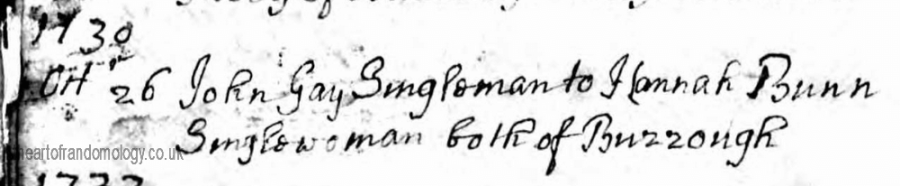 1730
Octr 26 John Gay Singleman to Hannah Bunn
Singlewoman both of Burrough
heartofrandomology.co.uk